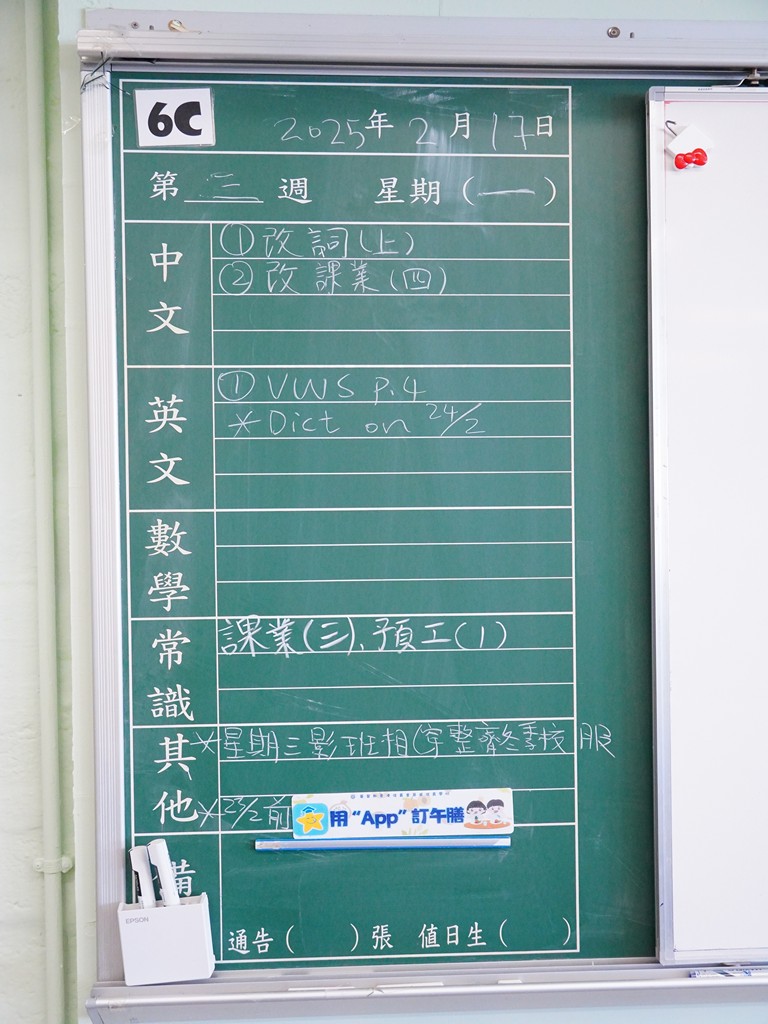 6C
2025年2月17日
第 三 週 星期(一)
中文
①改詞(上)
②改課業(四)
英文
① VWS p.4
*Dict on 24/2
數學
常識
課業(三)、預工(1)
其他
*星期三影班相(穿整齊冬季校服
*23/2前
用“App”訂午膳
備
EPSON
通告( )張 值日生( )